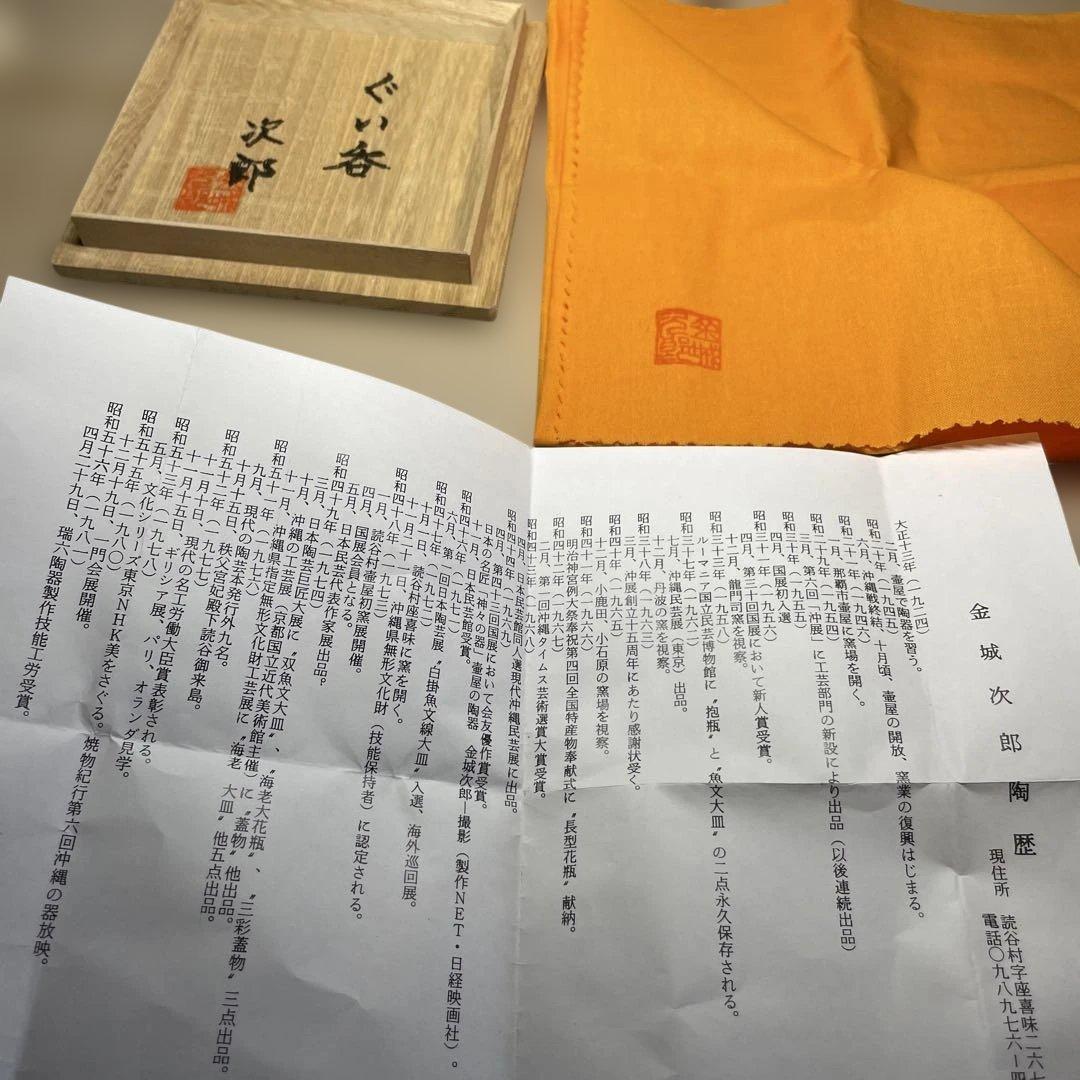 ぐい呑
次郎
金城次郎陶歴
現住所 読谷村字座喜味二六七
電話〇九八九七六ー四
大正十三年(一九二四)
一月、壷屋で陶器を習う。
昭和二十年(一九四五)
六月、沖縄戦終結、十月頃、壷屋の開放、窯業の復興はじまる。
一月、那覇市壷屋に窯場を開く。
昭和二十九年(一九五四)
三月、第六回「沖展」に工芸部門の新設により出品(以後連続出品)
昭和三十年(一九五五)
四月、国展初入選
昭和三十一年(一九五六)
四月、第三十回国展において新人賞受賞。
十二月、龍門司窯を視察。
昭和三十三年(一九五八)
ルーマニア国立民芸博物館に〝抱瓶〟と〝魚文大皿〟の二点永久保存される。
昭和三十七年(一九六二)
七月、沖縄民芸展(東京)出品。
十二月、丹波の窯を視察。
昭和三十八年(一九六三)
三月、沖展創立十五周年にあたり感謝状受く。
昭和四十年(一九六五)
十二月、小鹿田、小石原の窯場を視察。
昭和四十一年(一九六六)
明治神宮例大祭奉祝第四回全国特産物奉献式に〝長型花瓶〟献納。
昭和四十二年(一九六七)
十二月、第一回沖縄タイムス芸術選賞大賞受賞。
昭和四十三年(一九六八)
四月、日本民芸館同人選現代沖縄民芸展に出品。
昭和四十四年(一九六九)
四月、第四十三回国展において会友優作賞受賞。
日本の名匠「神々の器」壷屋の陶器 金城次郎―撮影(製作NET・日経映画社)。
十一月、日本民芸館賞受賞。
昭和四十六年(一九七一)
六月、第一回日本陶芸展〝白掛魚文線大皿〟入選、海外巡回展。
昭和四十七年(一九七二)
十月一日、読谷村座喜味に窯を開く。
十二月二十一日、沖縄県無形文化財(技能保持者)に認定される。
昭和四十八年(一九七三)
四月、読谷村壷屋初窯展開催。
五月、国展会員となる。
昭和四十九年(一九七四)
三月、日本民芸代表作家展出品。
十月、日本陶芸巨匠大展に〝双魚文大皿〟、〝海老大花瓶〟、〝三彩蓋物〟三点出品。
十一月、沖縄の工芸展(京都国立近代美術館主催)に〝蓋物〟他出品。
昭和五十一年(一九七六)
九月、沖縄県指定無形文化財工芸展に〝海老 大皿〟他五点出品。
十月十五日、現代の陶芸本発行外九名。
昭和五十二年(一九七七)
十一月十日、秩父宮妃殿下読谷御来島。
十一月十五日、現代の名工労働大臣賞表彰される。
昭和五十三年(一九七八)
五月、文化シリーズ東京NHK美をさぐる。焼物紀行第六回沖縄の器放映。
昭和五十五年(一九八〇)
十二月十九日、一門会展開催。
昭和五十六年(一九八一)
四月二十九日、瑞六陶器製作技能工労受賞。